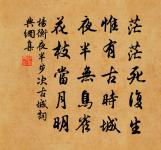 茫茫死復生
惟有古時城
夜半無鳥雀
花枝當月明
楊衡夜半步次古城詞